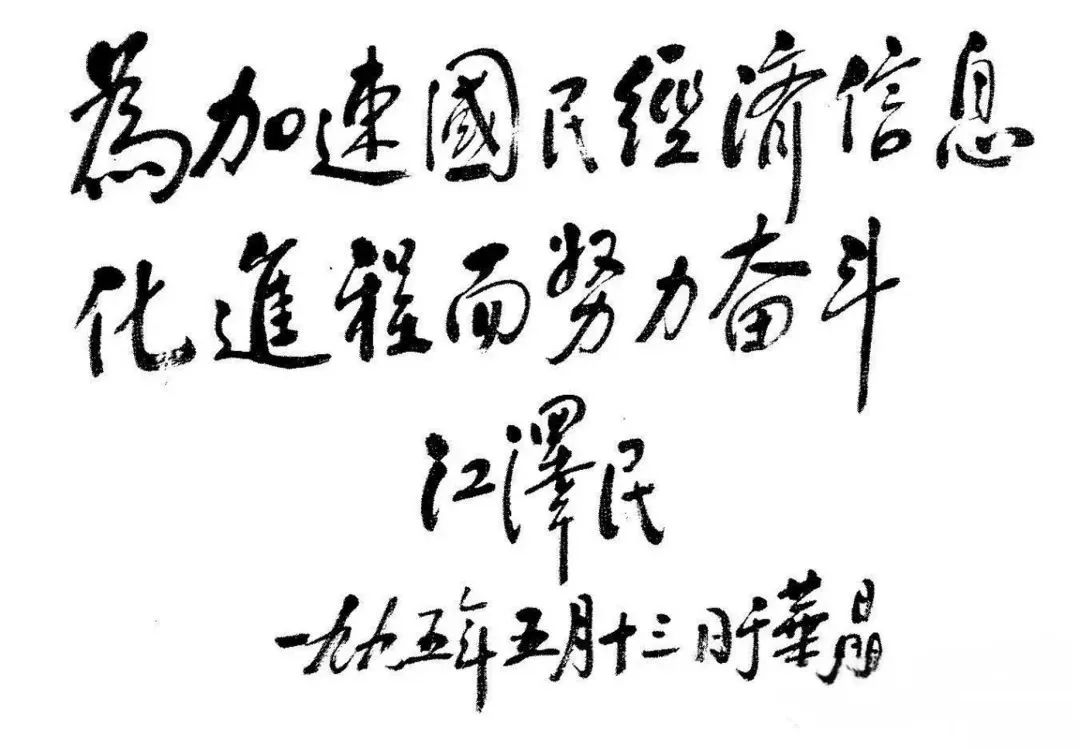 為加速國民經濟信息
化進程而努力奋斗
江澤民
一九九五年五月十三日于華晶